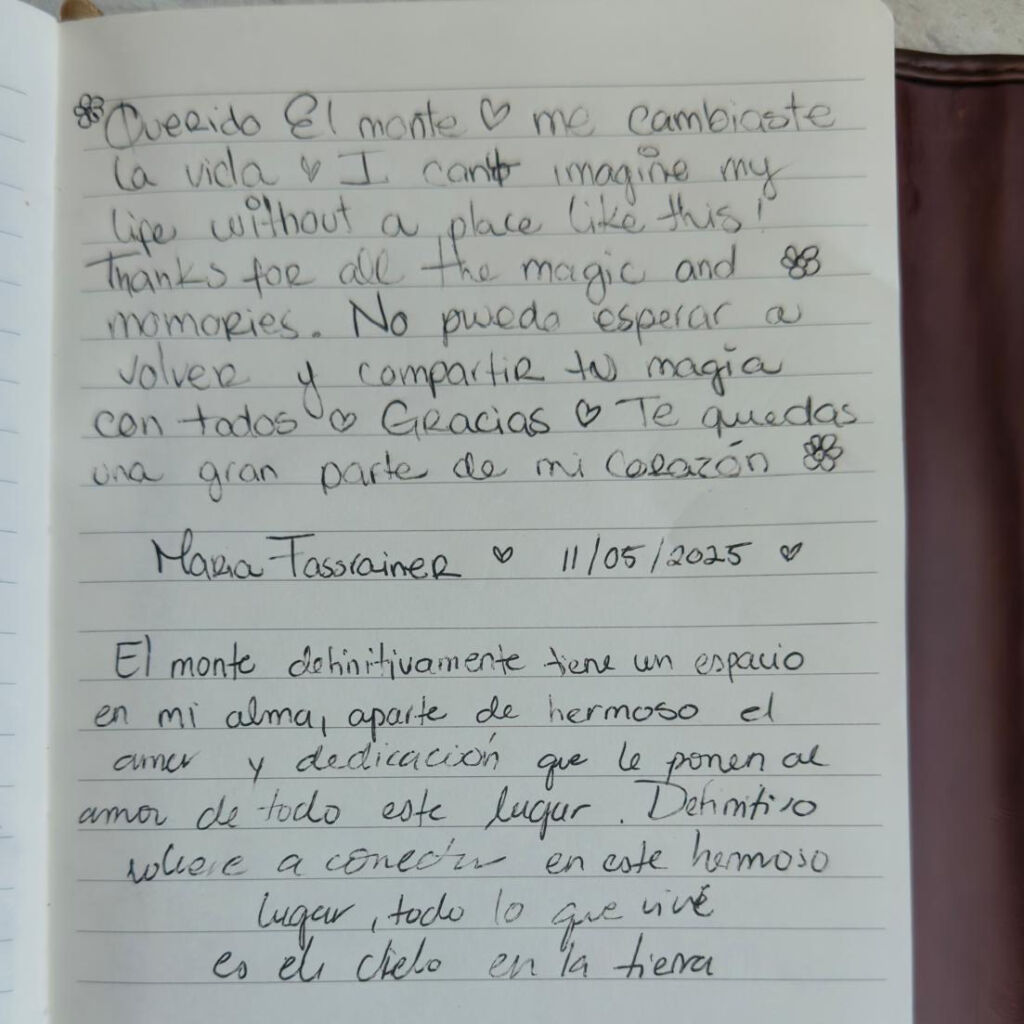 Querido El monte ♡ me cambiaste
la vida ♡ I can't imagine my
life without a place like this!
Thanks for all the magic and
momories. No puedo esperar a
volver y compartir tu magia
con todos ♡ Gracias ♡ Te quedas
una gran parte de mi Corazón
Maria ♡ 11/05/2025 ♡
El monte definitivamente tiene un espacio
en mi alma, aparte de hermoso el
amor y dedicación que le ponen al
amor de todo este lugar. Definitivo
volvere a conectar en este hermoso
lugar, todo lo que vivé
es el cielo en la tierra